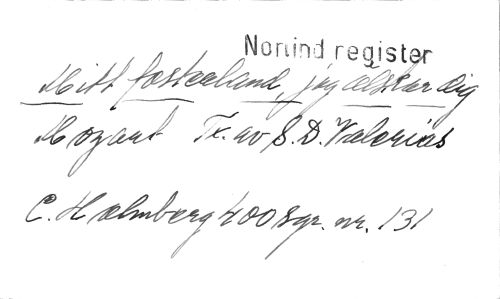 Norlind register
Mitt fosterland, jag älskar dig
Mozart Tx. av S.D. Valerius
C. Holmberg 400 sgr. nr. 131